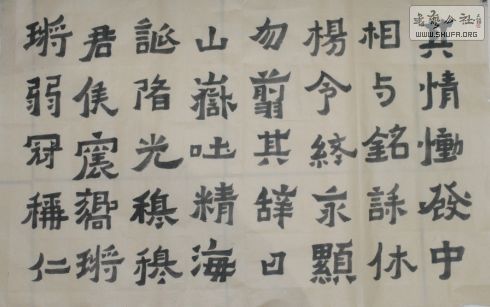 其情慟發中
相与銘誄休
楊令終永顯
勿翦其辭曰
山嶽吐精海
誕降光穆穆
君侯震響鏘
鏘弱冠稱仁
書藝公社
WWW.SHUFA.ORG